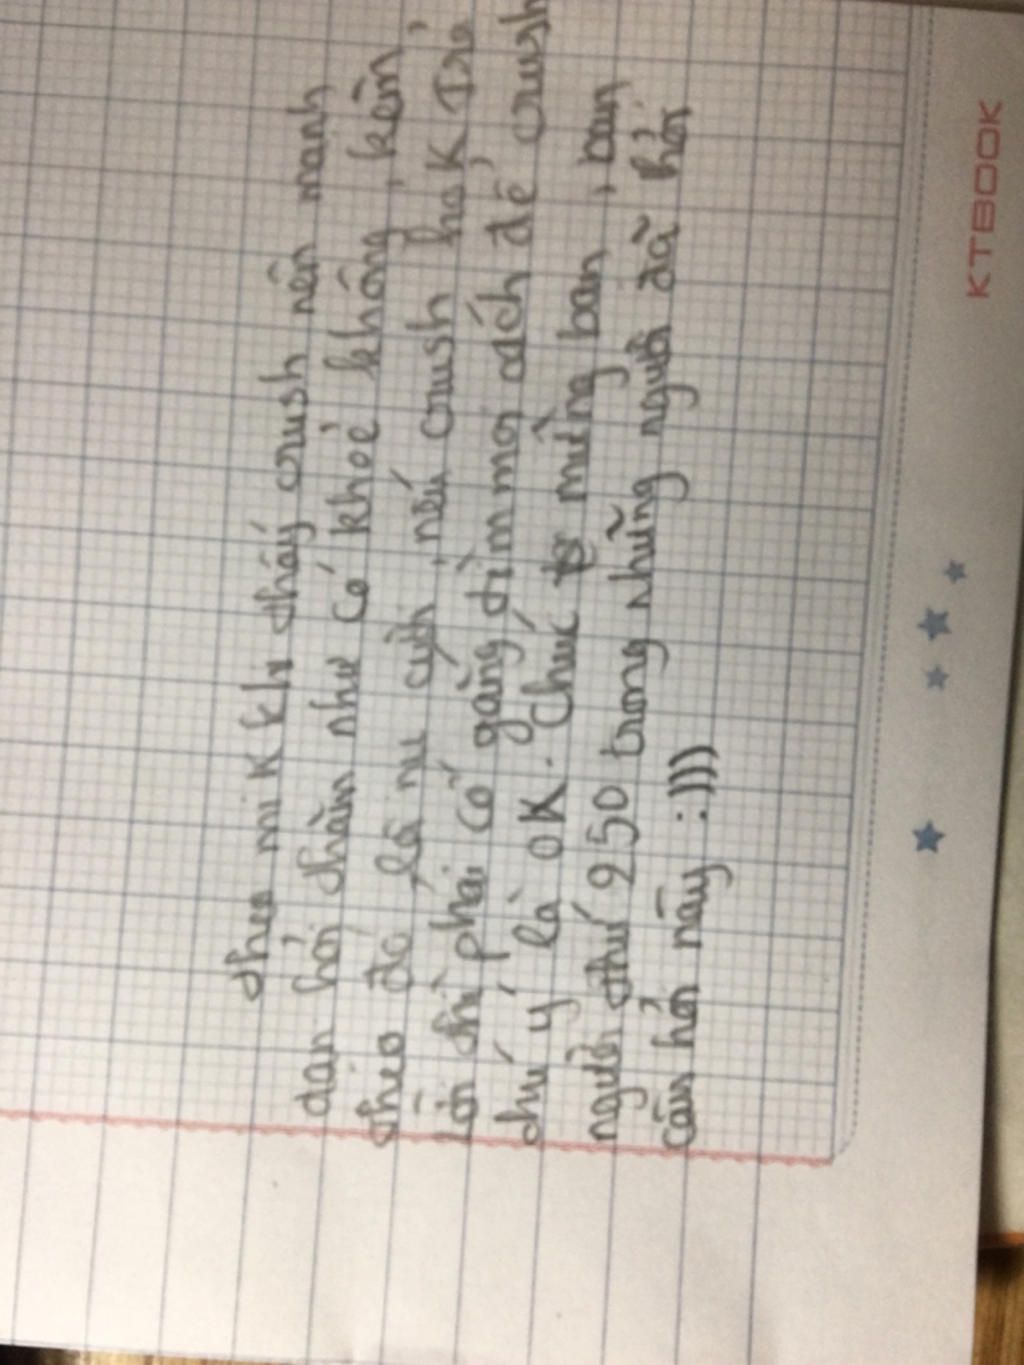 theo mik khi thấy crush nên mạnh
dạn hỏi thăm như có khoẻ không, kèm
theo đó là nụ cười, nếu crush hok trả
lời thì phải cố gắng tìm mọi cách để crush
chú ý là OK. Chúc mừng bạn, bạn
người thứ 250 trong những người đã hỏi
câu hỏi này :)))
KTBOOK